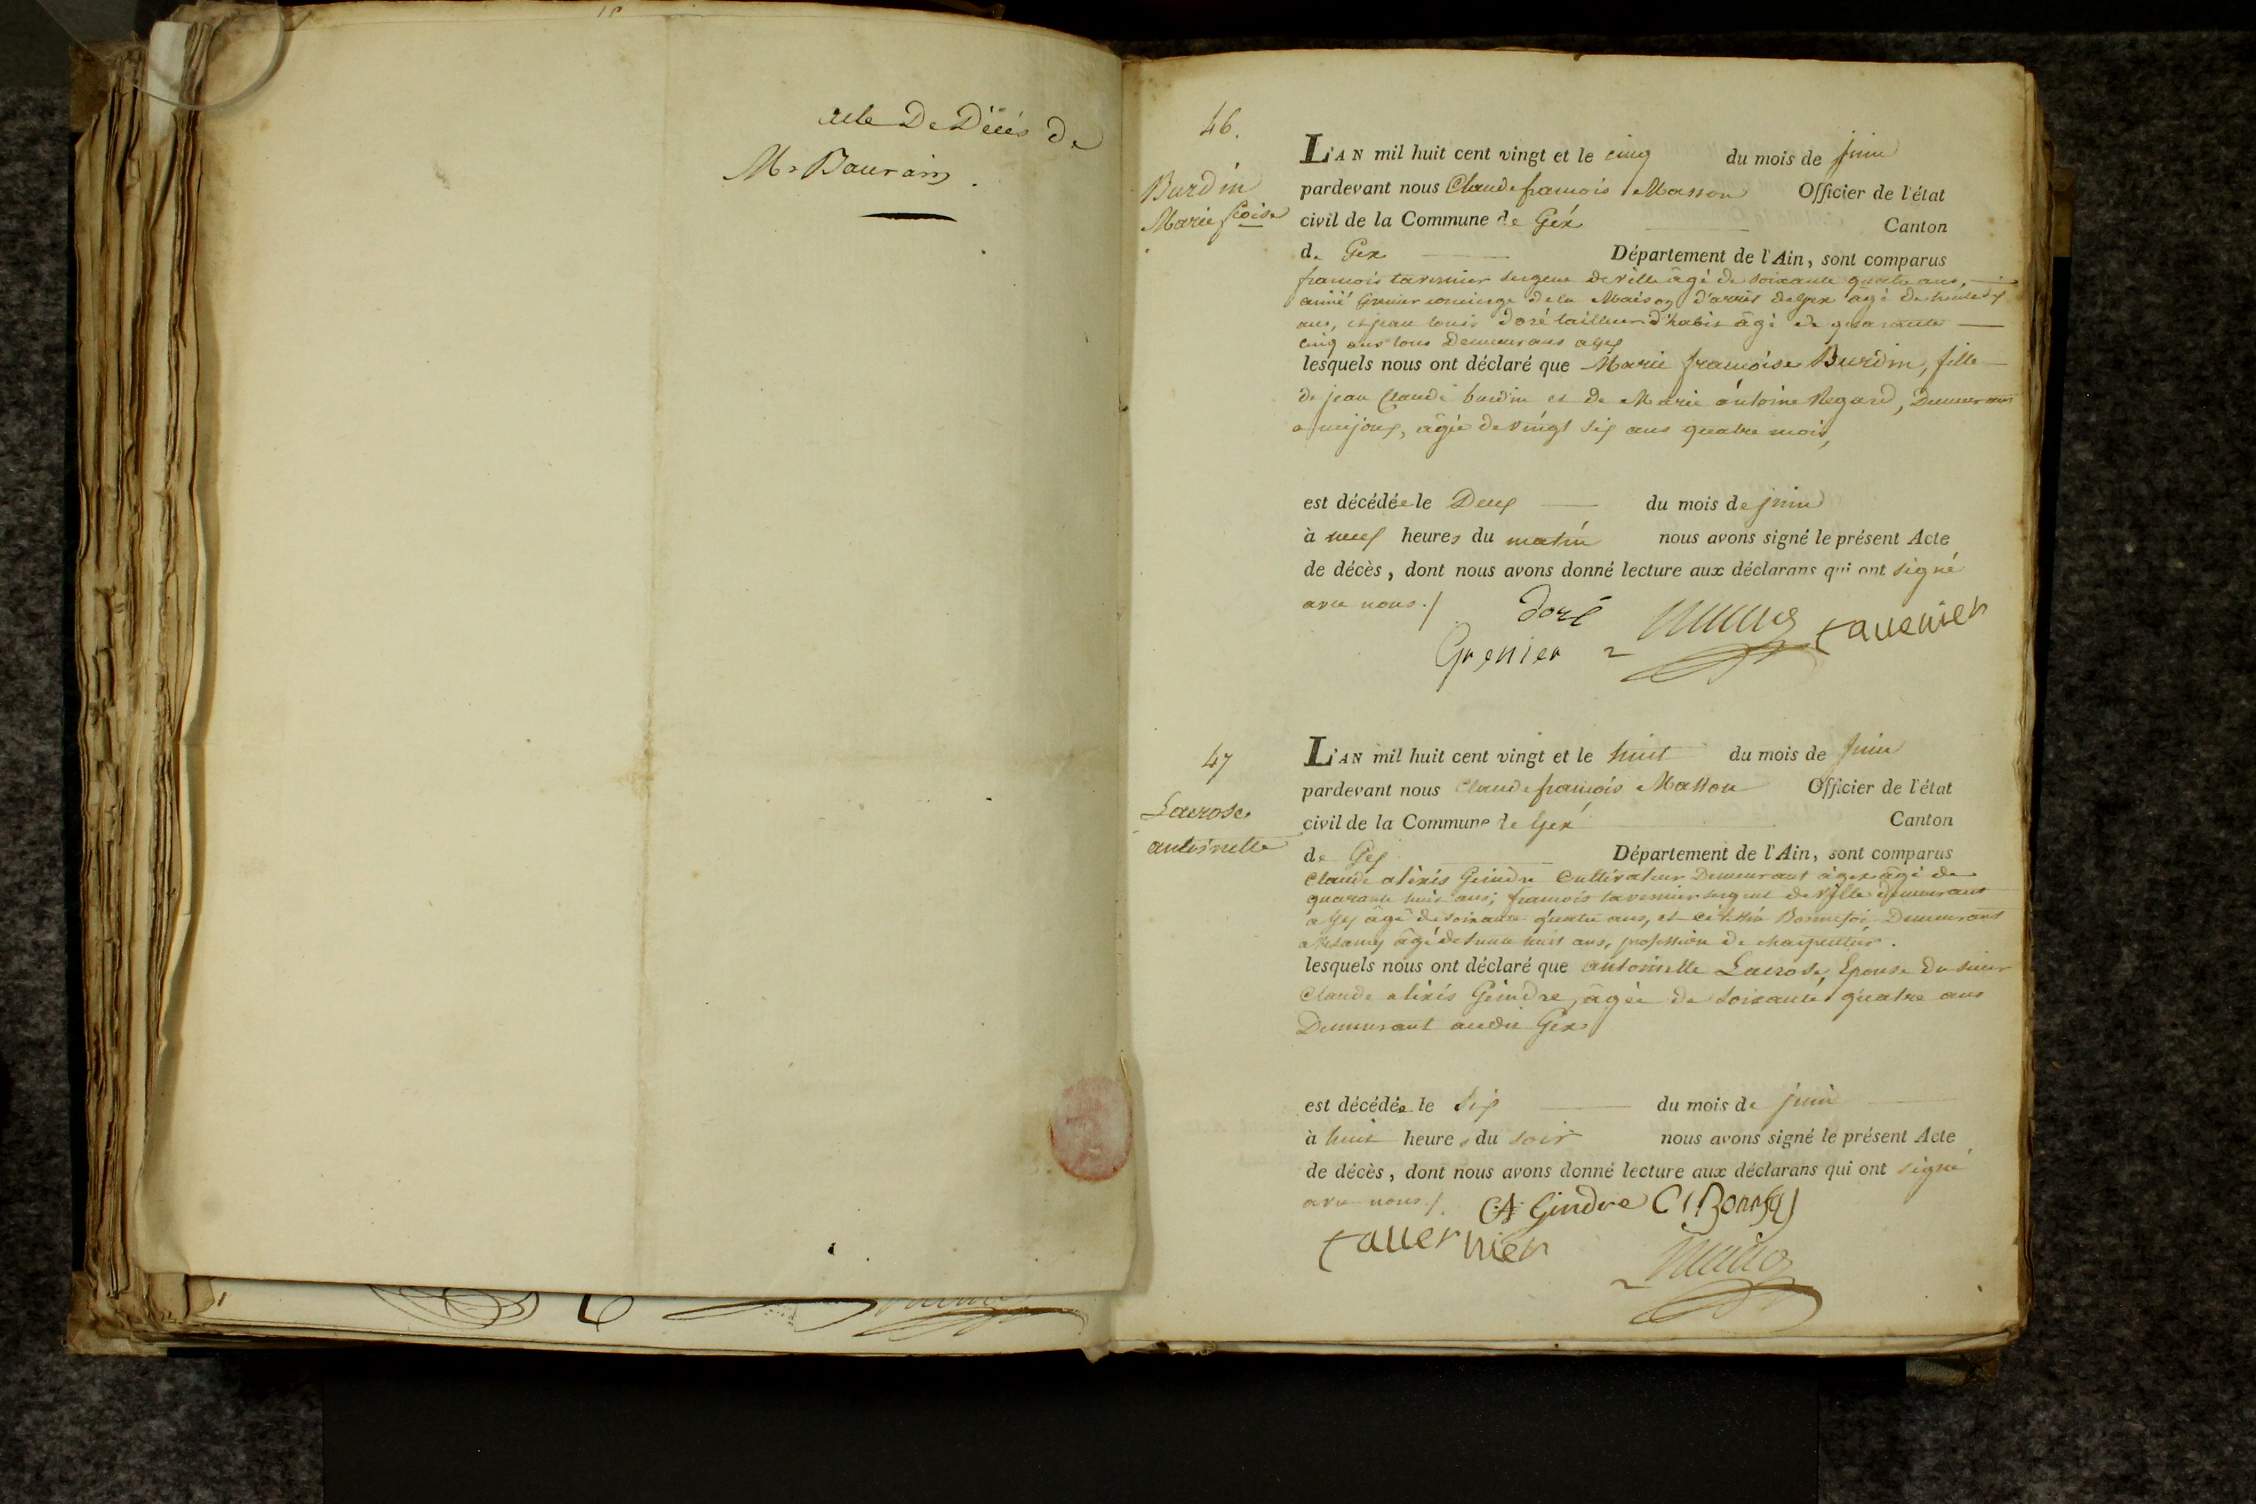 acte De Décés de
Mr Baurain.
46.
Burdin
Marie fcoise
L'AN mil huit cent vingt et le cinq du mois de juin
pardevant nous Claude francois Masson Officier de l'état
civil de la Commune de Gex Canton
de Gex Département de l'Ain, sont comparus
francois tavernier sergent de ville âgé de soixante quatre ans,
aimé Grenier concierge de la Maison d'arrêt de Gex âgé de trente six
ans, et jean louis Doré tailleur d'habit âgé de quarante
cinq ans tous Demeurans a Gex
lesquels nous ont déclaré que Marie francoise Burdin, fille
de jean Claude burdin et de Marie antoine Regard, Demeurans
a mijoux, âgée de vingt six ans quatre mois,
est décédée le Deux du mois de juin
à neuf heures du matin nous avons signé le présent Acte
de décès, dont nous avons donné lecture aux déclarans qui ont signé
avec nous ./
Doré
Grenier tavernier
47
Lacrose
antoinette
L'AN mil huit cent vingt et le huit du mois de Juin
pardevant nous Claude francois Masson Officier de l'état
civil de la Commune de Gex Canton
de Gex Département de l'Ain, sont comparus
Claude alexis Geindre Cultivateur Demeurant à gex âgé de
quarante huit ans; francois tavernier sergent de ville demeurant
a Gex âgé de soixante quatre ans, et Bonnefoi Demeurant
a âgé de trente huit ans, profession de charpentier.
lesquels nous ont déclaré que antoinette Lacrose, Epouse du sieur
Claude alexis Geindre, âgée de soixante quatre ans
Demeurant audit Gex
est décédée le Six du mois de juin
à huit heures du soir nous avons signé le présent Acte
de décès, dont nous avons donné lecture aux déclarans qui ont signé
avec nous ./. CA Gindre
tavernier